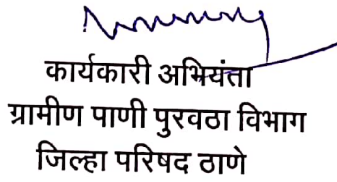 कार्यकारी अभियंता
ग्रामीण पाणी पुरवठा विभाग
जिल्हा परिषद ठाणे